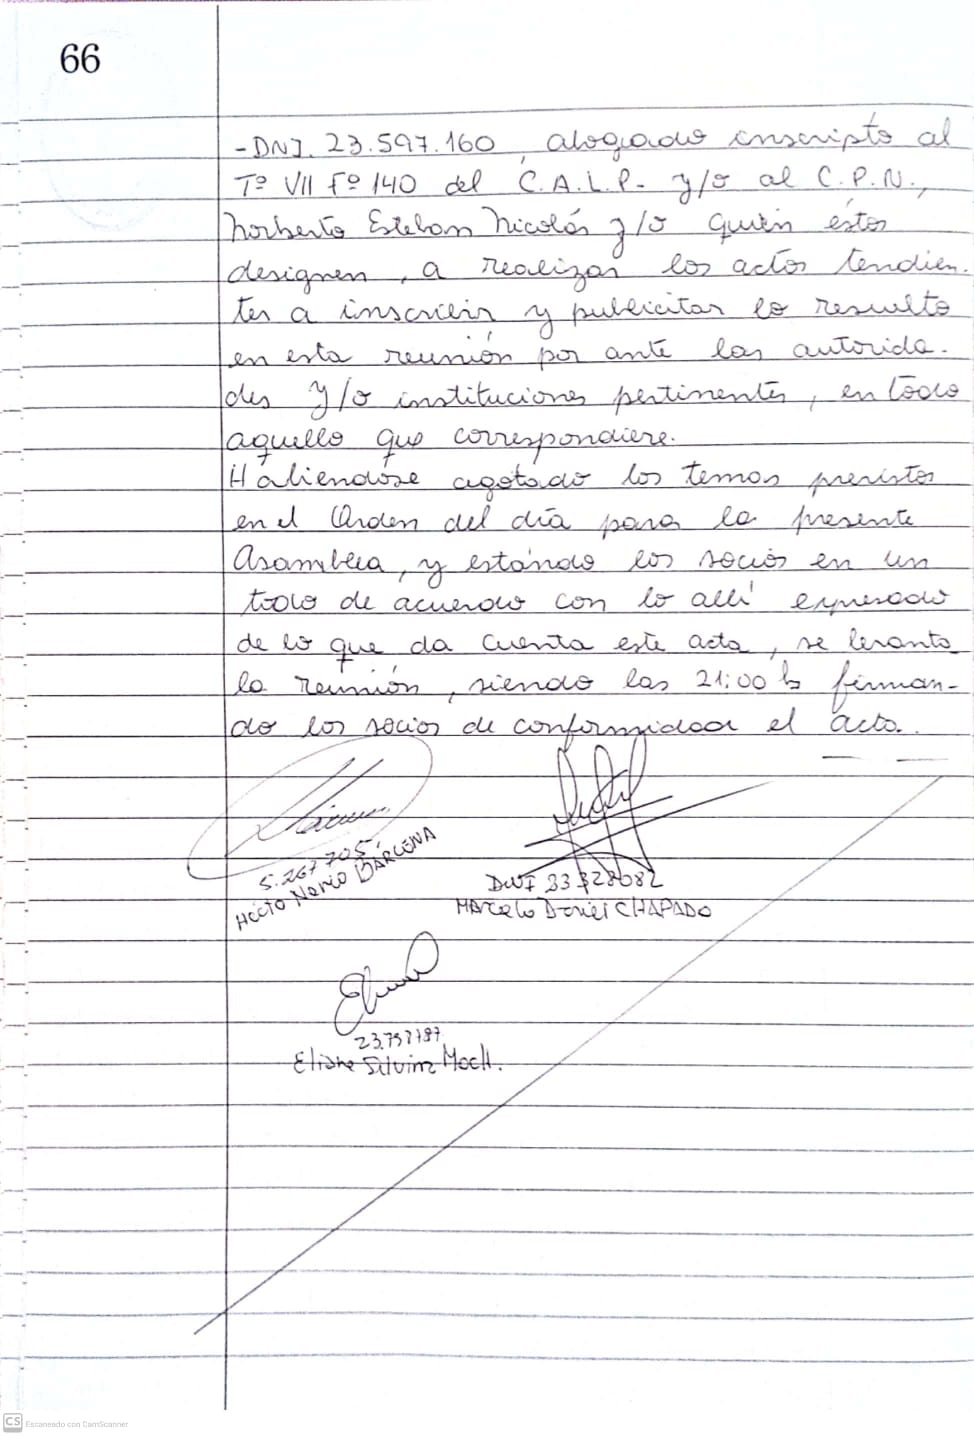 66
-DNI. 23.597.160, abogado inscripto al
Tº VII Fº 140 del C.A.L.P. y/o al C.P.N.,
Norberto Esteban Nicolás y/o quién éstos
designen, a realizar los actos tendien-
tes a inscribir y publicitar lo resuelto
en esta reunión por ante las autorida-
des y/o instituciones pertinentes, en todo
aquello que correspondiere.
Habiéndose agotado los temas previstos
en el Orden del día para la presente
Asamblea, y estando los socios en un
todo de acuerdo con lo allí expresado
de lo que da cuenta este acta, se levanta
la reunión, siendo las 21:00 h firman-
do los socios de conformidad el acta.
5.267.705
Hécto Nerio BARCENA
DNI 33328082
Marcelo Daniel CHAPADO
Eliane Silvina
CS Escaneado con CamScanner